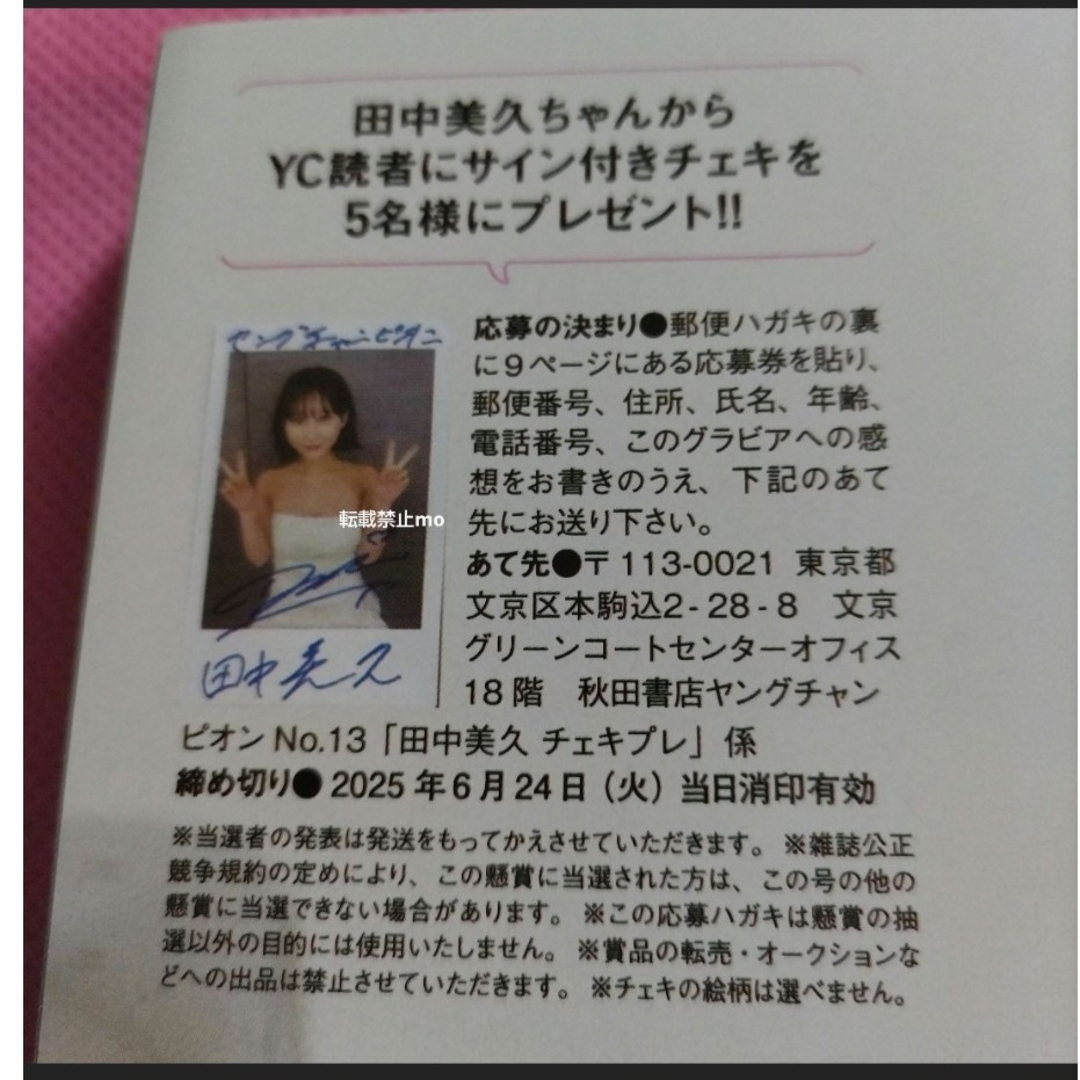 田中美久ちゃんから
YC読者にサイン付きチェキを
5名様にプレゼント!!
ヤングチャンピオン
転載禁止mo
田中美久
応募の決まり●郵便ハガキの裏
に9ページにある応募券を貼り、
郵便番号、住所、氏名、年齢、
電話番号、このグラビアへの感
想をお書きのうえ、下記のあて
先にお送り下さい。
あて先●〒113-0021 東京都
文京区本駒込2-28-8 文京
グリーンコートセンターオフィス
18階 秋田書店ヤングチャン
ピオンNo.13「田中美久 チェキプレ」係
締め切り●2025年6月24日(火)当日消印有効
※当選者の発表は発送をもってかえさせていただきます。※雑誌公正
競争規約の定めにより、この懸賞に当選された方は、この号の他の
懸賞に当選できない場合があります。※この応募ハガキは懸賞の抽
選以外の目的には使用いたしません。※賞品の転売・オークションな
どへの出品は禁止させていただきます。※チェキの絵柄は選べません。